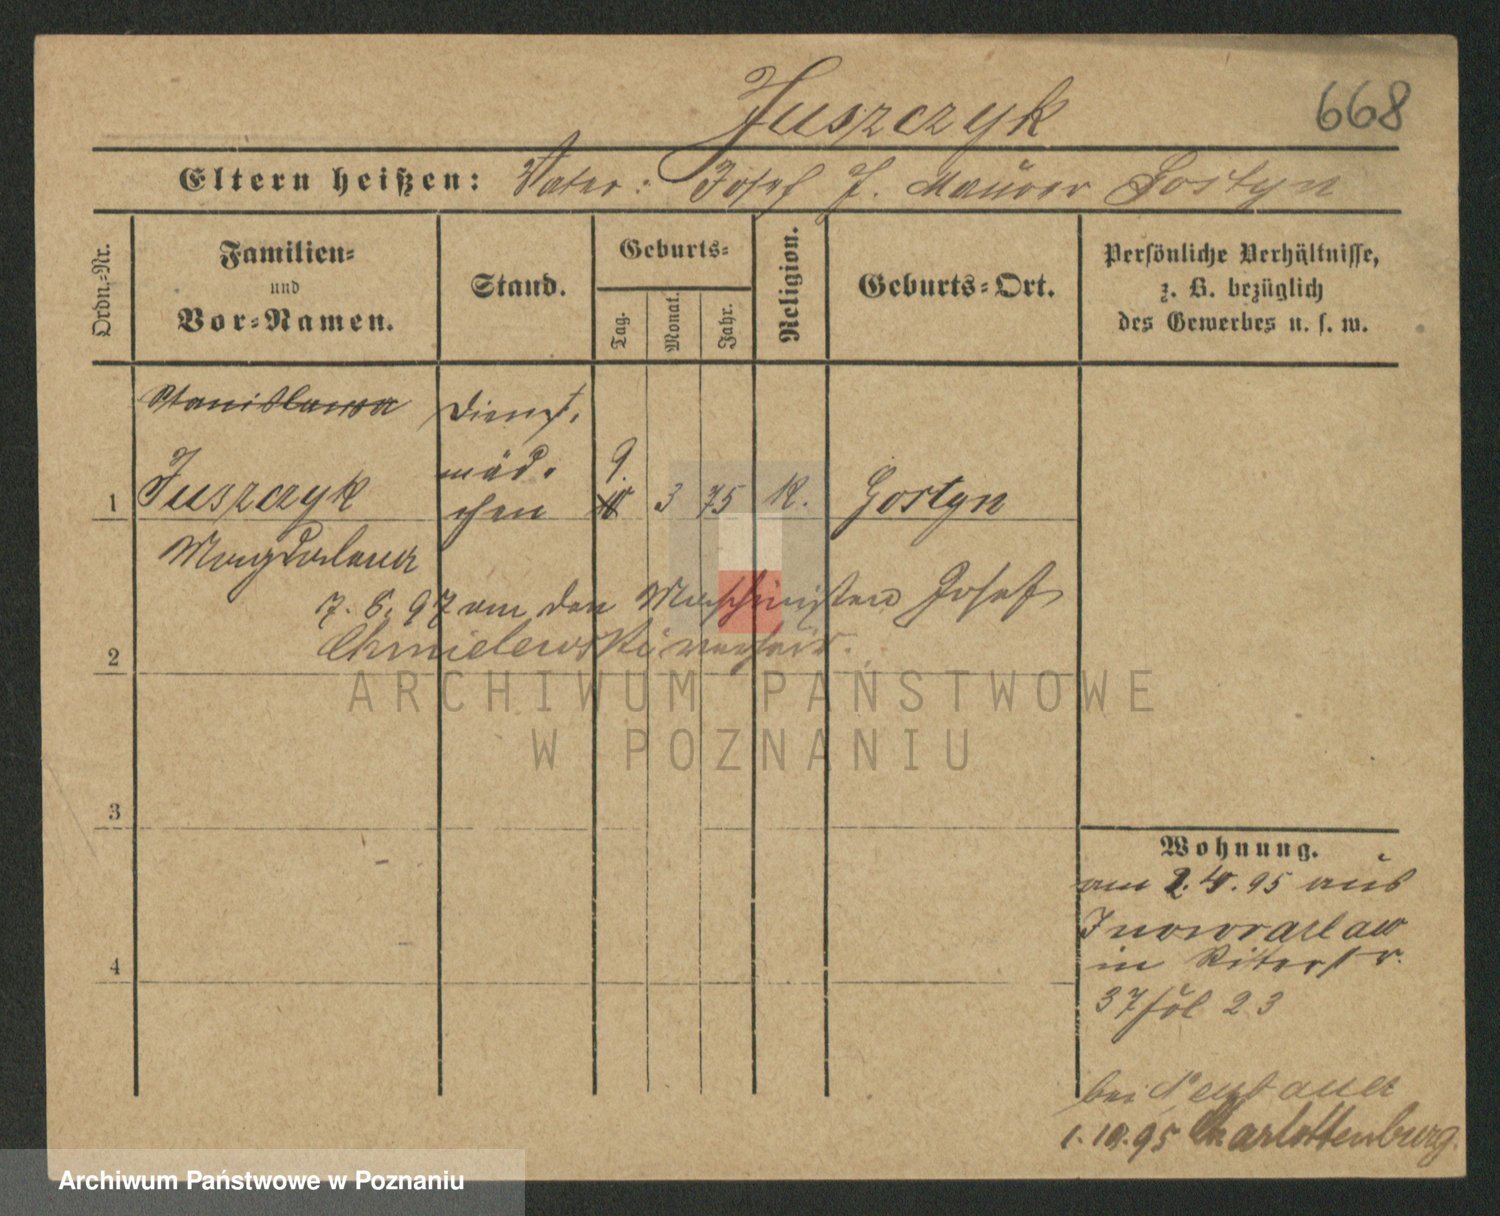 Juszczyk
668
Eltern heißen: Vater: Josef J. Maurer Gostyn
Ordn.-Nr.
Familien-
und
Vor-Namen.
Stand.
Geburts-
Tag.
Monat.
Jahr.
Religion.
Geburts-Ort.
Persönliche Verhältnisse,
z. B. bezüglich
des Gewerbes u. s. w.
Stanislawa
Dienst-
mäd-
chen
1
Juszczyk
9.
3
75
K.
Gostyn
Magdalena
7. 6. 97 an den Maschinisten Josef
2
Chmielewski verheir.
ARCHIWUM PAŃSTWOWE
W POZNANIU
3
Wohnung.
am 2. 4. 95 aus
Inowrazlaw
4
in Ritterstr.
37 23
bei
1. 10. 95 Charlottenburg.
Archiwum Państwowe w Poznaniu